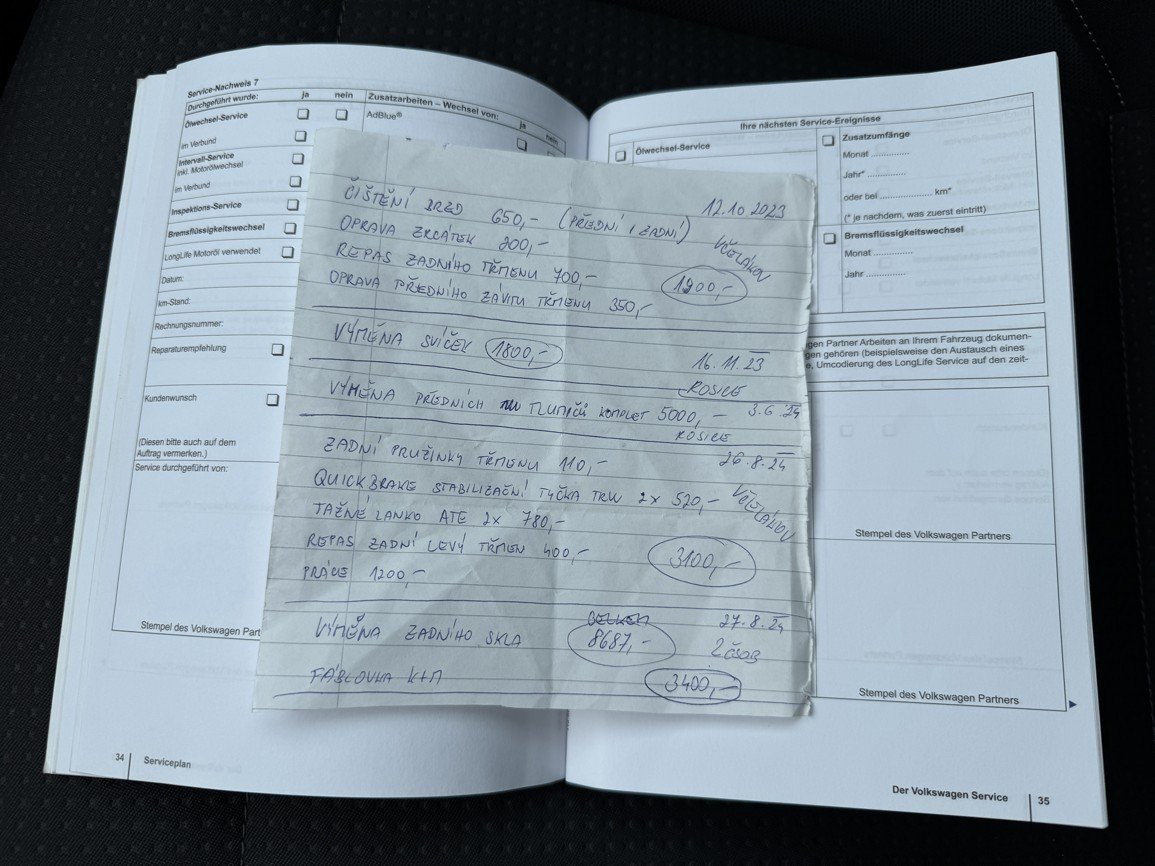 Service-Nachweis 7
Durchgeführt wurde: ja nein
Zusatzarbeiten – Wechsel von: ja nein
Ölwechsel-Service
AdBlue®
im Verbund
Intervall-Service
inkl. Motorölwechsel
im Verbund
Inspektions-Service
Bremsflüssigkeitswechsel
LongLife Motoröl verwendet
Datum:
km-Stand:
Rechnungsnummer:
Reparaturempfehlung
Kundenwunsch
(Diesen bitte auch auf dem
Auftrag vermerken.)
Service durchgeführt von:
Stempel des Volkswagen Part
34 Serviceplan
12.10 2023
ČIŠTĚNÍ BRZD 650,- (PŘEDNÍ I ZADNÍ)
OPRAVA ZRCÁTEK 200,-
VČELÁKOV
REPAS ZADNÍHO TŘMENU 700,-
1900,-
OPRAVA PŘEDNÍHO ZÁVITU TŘMENU 350,-
VÝMĚNA SVÍČEK 1800,-
16.11.23
ROSICE
VÝMĚNA PŘEDNÍCH TLUMIČŮ KOMPLET 5000,- 3.6.24
ROSICE
26.8.24
ZADNÍ PRUŽINKY TŘMENU 110,-
QUICK BRAKE STABILIZAČNÍ TYČKA TRW 2x 520,-
VČELÁKOV
TAŽNÉ LANKO ATE 2x 780,-
REPAS ZADNÍ LEVÝ TŘMEN 400,-
3100,-
PRÁCE 1200,-
CELKEM 27.8.24
VÝMĚNA ZADNÍHO SKLA 8687,-
FÁBLOVKA K+M 3400,-
Ihre nächsten Service-Ereignisse
Ölwechsel-Service
Zusatzumfänge
Monat ..............
Jahr* ..............
oder bei .................. km*
(* je nachdem, was zuerst eintritt)
Bremsflüssigkeitswechsel
Monat ..............
Jahr ..............
gen Partner Arbeiten an Ihrem Fahrzeug dokumen-
gen gehören (beispielsweise den Austausch eines
e, Umcodierung des LongLife Service auf den zeit-
Stempel des Volkswagen Partners
Stempel des Volkswagen Partners
Der Volkswagen Service 35